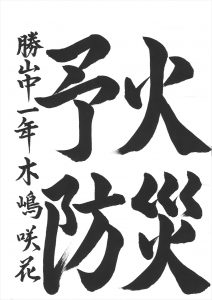 火災
予防
勝山中一年 木嶋咲花